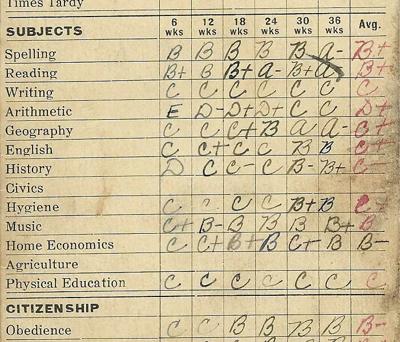 Times Tardy
SUBJECTS 6 wks 12 wks 18 wks 24 wks 30 wks 36 wks Avg.
Spelling B B B B B A- B+
Reading B+ B B+ A- B+ A- B+
Writing C C C C C C C
Arithmetic E D- D+ D+ C C D+
Geography C C C+ B A A- C+
English C C+ C C B B C+
History D C C- C B- B+ C-
Civics
Hygiene C C C C B+ B C+
Music C+ B- B B B B+ B
Home Economics C C+ B+ B C+ B B-
Agriculture
Physical Education C C C C C C C
CITIZENSHIP
Obedience C C B B B B B-